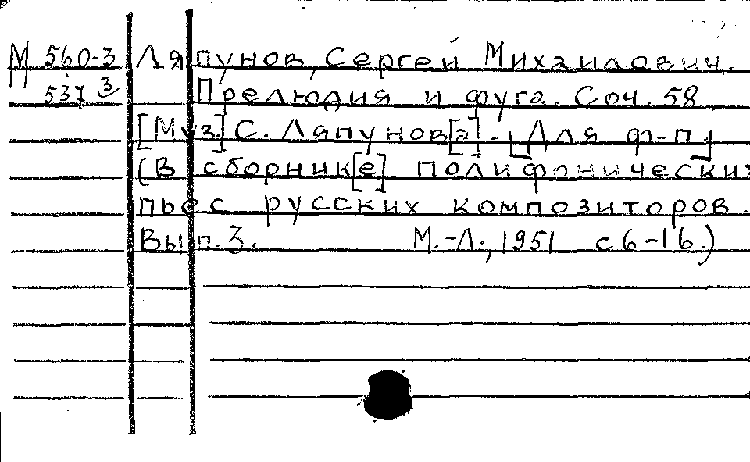 М 560-3 Ляпунов, Сергей Михайлович.
537 3 Прелюдия и фуга. Соч. 58
[Муз] С. Ляпунов[а]. [Для ф-п]
(В сборник[е] полифонических
пьес русских композиторов.
Вып. 3. М.-Л., 1951 с 6-16.)